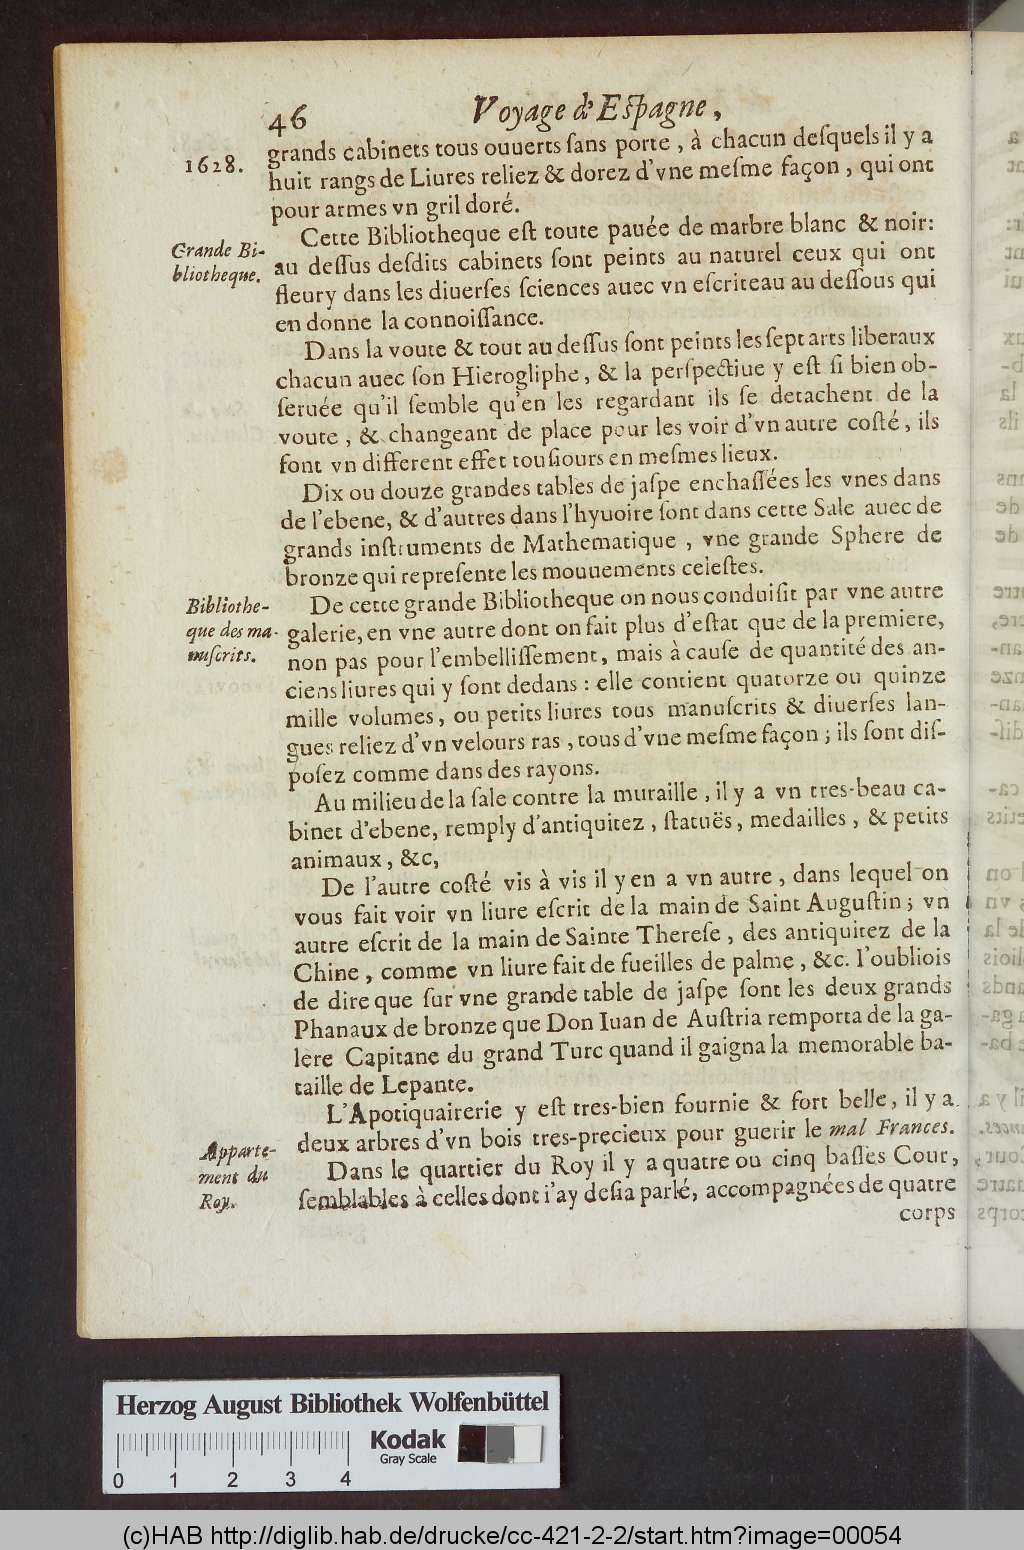 46
Voyage d'Espagne,
1628.
grands cabinets tous ouuerts ſans porte, à chacun deſquels il y a
huit rangs de Liures reliez & dorez d'vne meſme façon, qui ont
pour armes vn gril doré.
Grande Bi-
bliotheque.
Cette Bibliotheque eſt toute pauée de marbre blanc & noir:
au deſſus deſdits cabinets ſont peints au naturel ceux qui ont
fleury dans les diuerſes ſciences auec vn eſcriteau au deſſous qui
en donne la connoiſſance.
Dans la voute & tout au deſſus ſont peints les ſept arts liberaux
chacun auec ſon Hierogliphe, & la perſpectiue y eſt ſi bien ob-
ſeruée qu'il ſemble qu'en les regardant ils ſe detachent de la
voute, & changeant de place pour les voir d'vn autre coſté, ils
font vn different effet touſiours en meſmes lieux.
Dix ou douze grandes tables de jaſpe enchaſſées les vnes dans
de l'ebene, & d'autres dans l'hyuoire ſont dans cette Sale auec de
grands inſtruments de Mathematique, vne grande Sphere de
bronze qui repreſente les mouuements celeſtes.
Bibliothe-
que des ma-
nuſcrits.
De cette grande Bibliotheque on nous conduiſit par vne autre
galerie, en vne autre dont on fait plus d'eſtat que de la premiere,
non pas pour l'embelliſſement, mais à cauſe de quantité des an-
ciens liures qui y ſont dedans: elle contient quatorze ou quinze
mille volumes, ou petits liures tous manuſcrits & diuerſes lan-
gues reliez d'vn velours ras, tous d'vne meſme façon; ils ſont diſ-
poſez comme dans des rayons.
Au milieu de la ſale contre la muraille, il y a vn tres-beau ca-
binet d'ebene, remply d'antiquitez, ſtatuës, medailles, & petits
animaux, &c,
De l'autre coſté vis à vis il y en a vn autre, dans lequel on
vous fait voir vn liure eſcrit de la main de Saint Auguſtin; vn
autre eſcrit de la main de Sainte Thereſe, des antiquitez de la
Chine, comme vn liure fait de fueilles de palme, &c. I'oubliois
de dire que ſur vne grande table de jaſpe ſont les deux grands
Phanaux de bronze que Don Iuan de Auſtria remporta de la ga-
lere Capitane du grand Turc quand il gaigna la memorable ba-
taille de Lepante.
L'Apotiquairerie y eſt tres-bien fournie & fort belle, il y a
deux arbres d'vn bois tres-precieux pour guerir le mal Frances.
Apparte-
ment du
Roy.
Dans le quartier du Roy il y a quatre ou cinq baſſes Cour,
ſemblables à celles dont i'ay deſia parlé, accompagnées de quatre
corps
Herzog August Bibliothek Wolfenbüttel
Kodak
Gray Scale
0 1 2 3 4
(c)HAB http://diglib.hab.de/drucke/cc-421-2-2/start.htm?image=00054